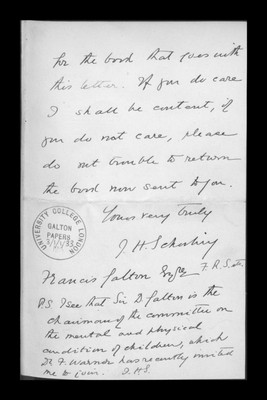 for the book that goes with
this letter. If you do care
I shall be content, if
you do not care, please
do not trouble to return
the book now sent to you.
Yours very truly
J. H. S
Francis Galton Esqre F.R.S. etc.
P.S. I see that Sir D. Galton is the
chairman of the committee on
the mental and physical
condition of children, which
Dr F. Warner has recently invited
me to join. J.H.S.
UNIVERSITY COLLEGE LONDON
GALTON
PAPERS